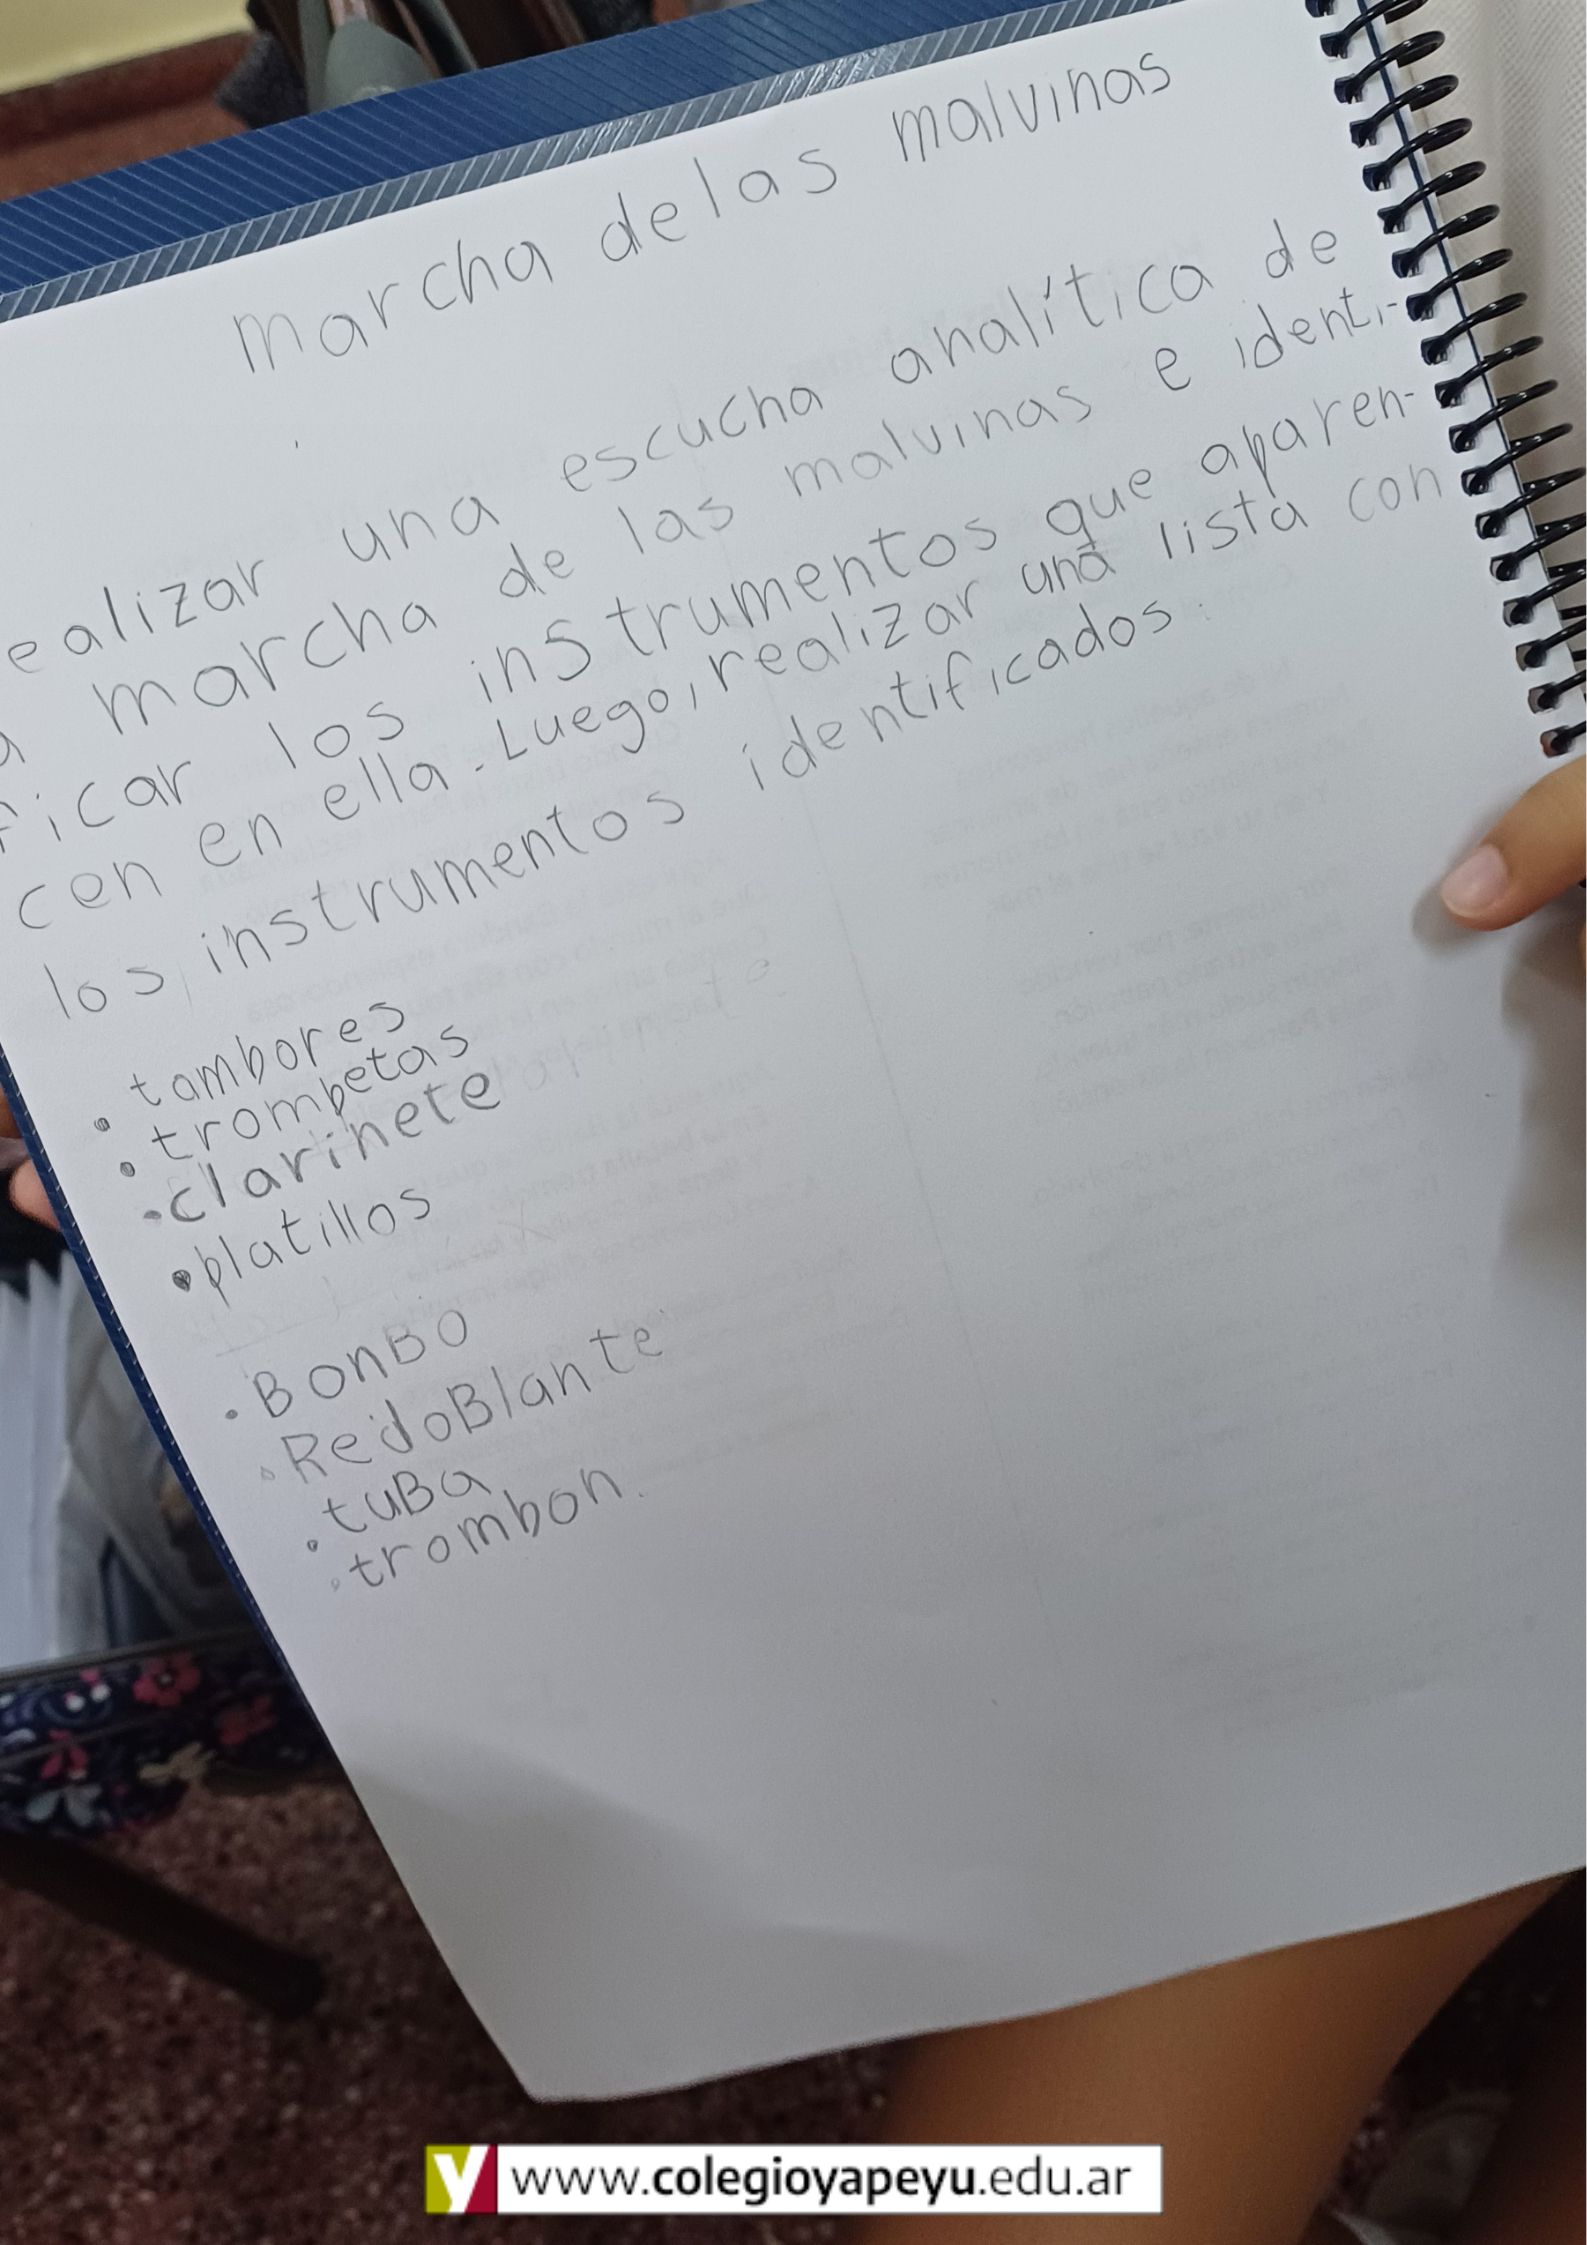 marcha de las malvinas
ealizar una escucha analítica de
a marcha de las malvinas e identi-
ficar los instrumentos que aparen-
cen en ella. Luego, realizar una lista con
los instrumentos identificados.
• tambores
• trombetas
• clarinete
• platillos
• BonBo
• RedoBlante
• tuBa
• trombon.
www.colegioyapeyu.edu.ar